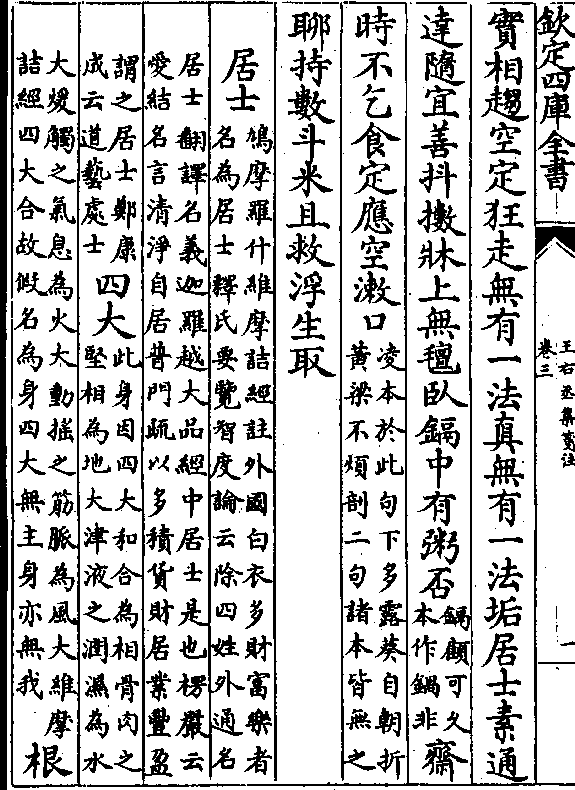 欽定四庫全書
王右丞集箋注
卷三
一
實相趨空定狂走無有一法真無有一法垢居士素通
達隨宜善抖擻牀上無氊臥鎘中有粥否
鎘顧可久
本作鍋非
齋
時不乞食定應空漱口
凌本於此句下多露葵自朝折
黃梁不煩剖二句諸本皆無之
聊持數斗米且救浮生取
居士
鳩摩羅什維摩詰經註外國白衣多財富樂者
名為居士釋氏要覽智度論云除四姓外通名
居士翻譯名義迦羅越大品經中居士是也楞嚴云
愛結名言清淨自居普門疏以多積貨財居業豐盈
謂之居士鄭康
成云道藝處士
四大
此身因四大和合為相骨肉之
堅相為地大津液之潤濕為水
大煖觸之氣息為火大動搖之筋脈為風大維摩
詰經四大合故假名為身四大無主身亦無我
根